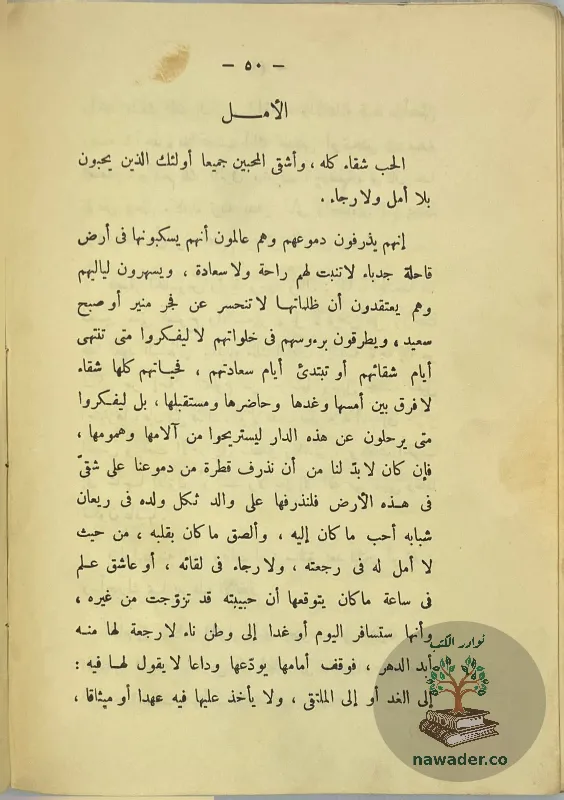 — ٥٠ —
الأمـــل
الحب شقاء كله ، وأشقى المحبين جميعا أولئك الذين يحبون
بلا أمل ولا رجاء .
إنهم يذرفون دموعهم وهم عالمون أنهم يسكبونها فى أرض
قاحلة جدباء لا تنبت لهم راحة ولا سعادة ، ويسهرون لياليهم
وهم يعتقدون أن ظلماتها لا تنحسر عن فجر منير أو صبح
سعيد ، ويطرقون برءوسهم فى خلواتهم لا ليفكروا متى تنتهى
أيام شقائهم أو تبتدئ أيام سعادتهم ، فحياتهم كلها شقاء
لا فرق بين أمسها وغدها وحاضرها ومستقبلها ، بل ليفكروا
متى يرحلون عن هذه الدار ليستريحوا من آلامها وهمومها ،
فإن كان لا بدّ لنا من أن نذرف قطرة من دموعنا على شقىّ
فى هذه الأرض فلنذرفها على والد ثكل ولده فى ريعان
شبابه أحب ما كان إليه ، وألصق ما كان بقلبه ، من حيث
لا أمل له فى رجعته ، ولا رجاء فى لقائه ، أو عاشق علم
فى ساعة ما كان يتوقعها أن حبيبته قد تزوّجت من غيره ،
وأنها ستسافر اليوم أو غدا إلى وطن ناء لا رجعة لها منه
أبد الدهر ، فوقف أمامها يودّعها وداعا لا يقول لها فيه :
إلى الغد أو إلى الملتقى ، ولا يأخذ عليها فيه عهدا أو ميثاقا ،
نوادر الكتب
nawader.co